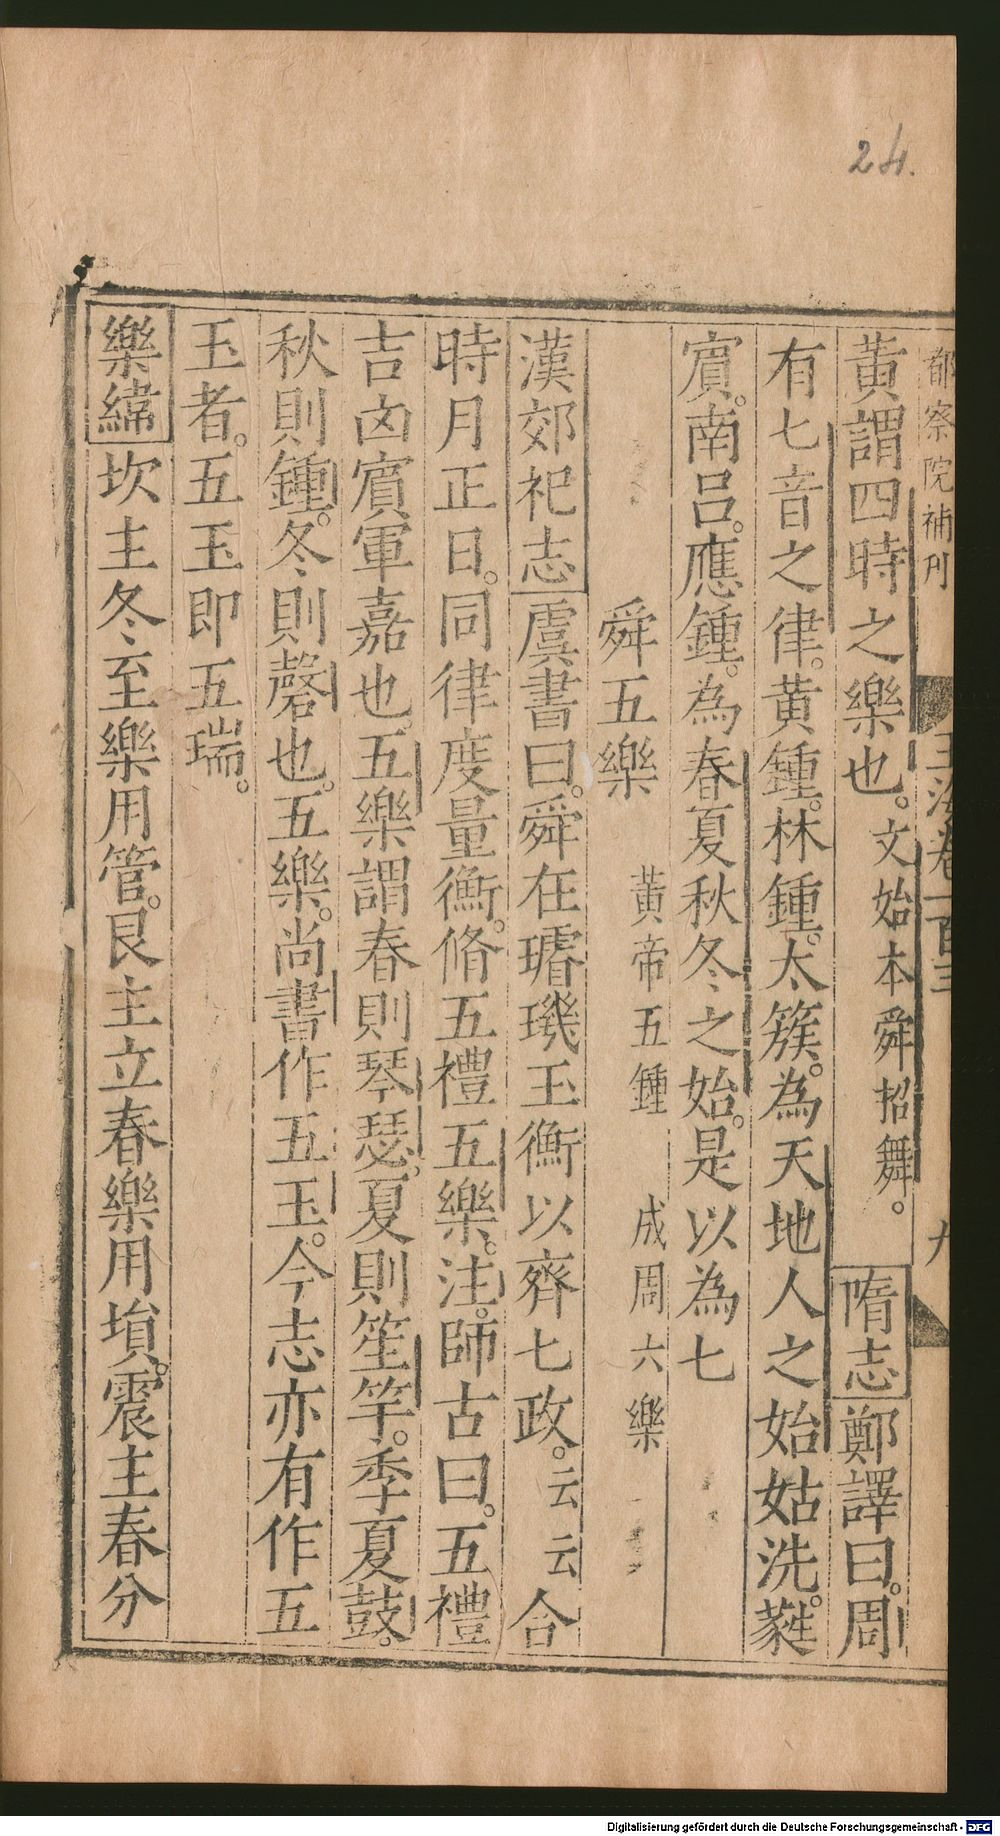 24.
都察院補刋
玉海卷一百三
九
黃謂四時之樂也。文始本舜招舞。隋志鄭譯曰。周
有七音之律。黃鍾。林鍾。太簇。為天地人之始姑洗。蕤
賔。南呂。應鍾。為春夏秋冬之始。是以為七
舜五樂 黃帝五鍾 成周六樂
漢郊祀志虞書曰。舜在璿璣玉衡以齊七政。云云合
時月正日。同律度量衡。脩五禮五樂。注。師古曰。五禮
吉凶賔軍嘉也。五樂謂春則琴瑟。夏則笙竽。季夏鼓。
秋則鍾。冬則磬也。五樂。尚書作五玉。今志亦有作五
玉者。五玉即五瑞。
樂緯坎主冬至樂用管。艮主立春樂用塤。震主春分
Digitalisierung gefördert durch die Deutsche Forschungsgemeinschaft - DFG